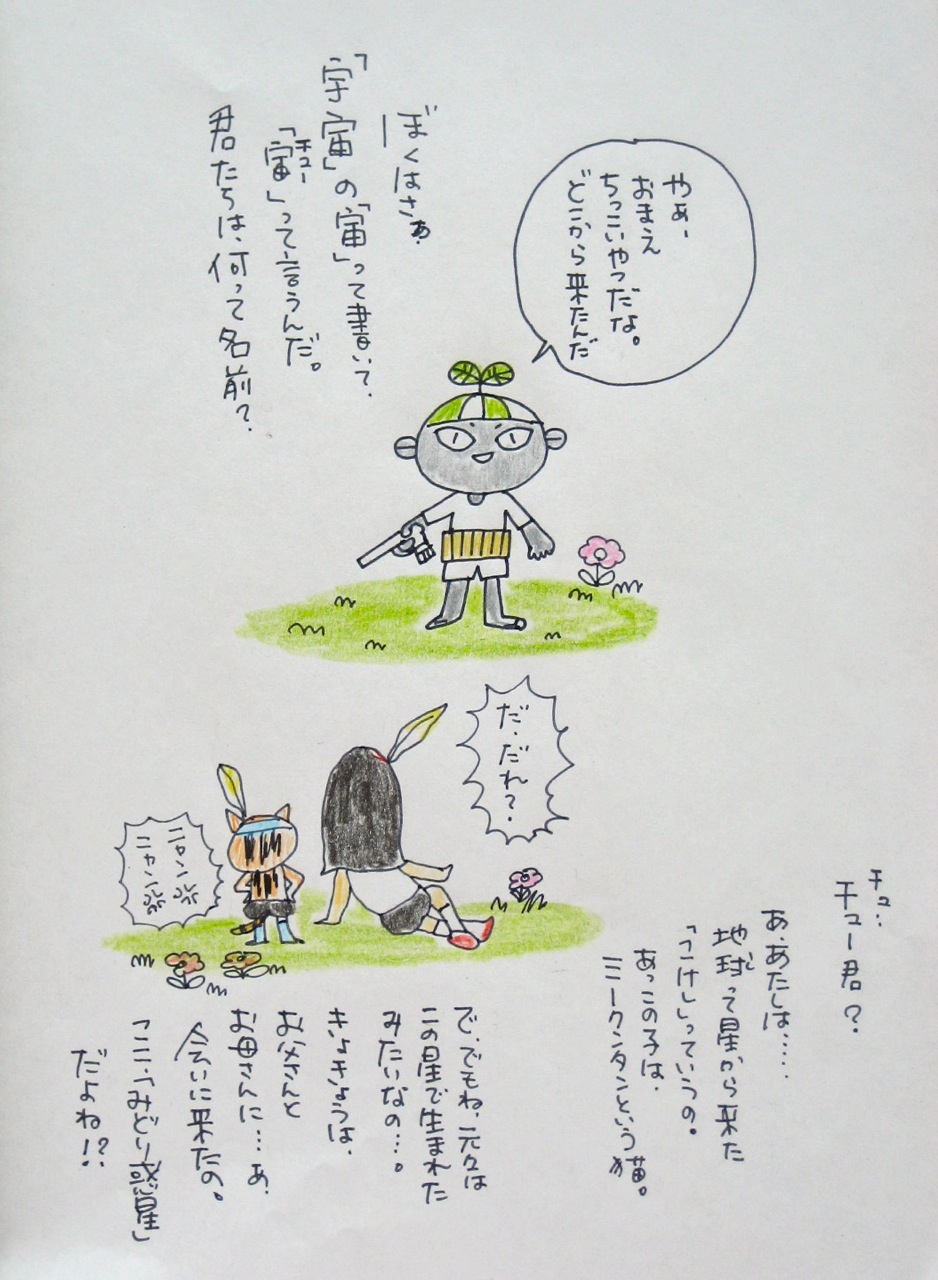 やぁー
おまえ
ちっこいやつだな。
どこから来たんだ
ぼくはさぁ、
「宇宙」の「宙」って書いて、
「宙」って言うんだ。
チュー
君たちは、何って名前？
だ、だれ？
ニャンン
ニャンン
チュ…
チュー君？
あ、あたしは……
地球って星から来た
「こけし」っていうの。
あっこの子は、
ミークンタンという猫。
で、でもね、元々は
この星で生まれた
みたいなの…。
きょ、きょうは、
お父さんと
お母さんに…あ、
会いに来たの。
ここ、「みどり惑星」
だよね!?